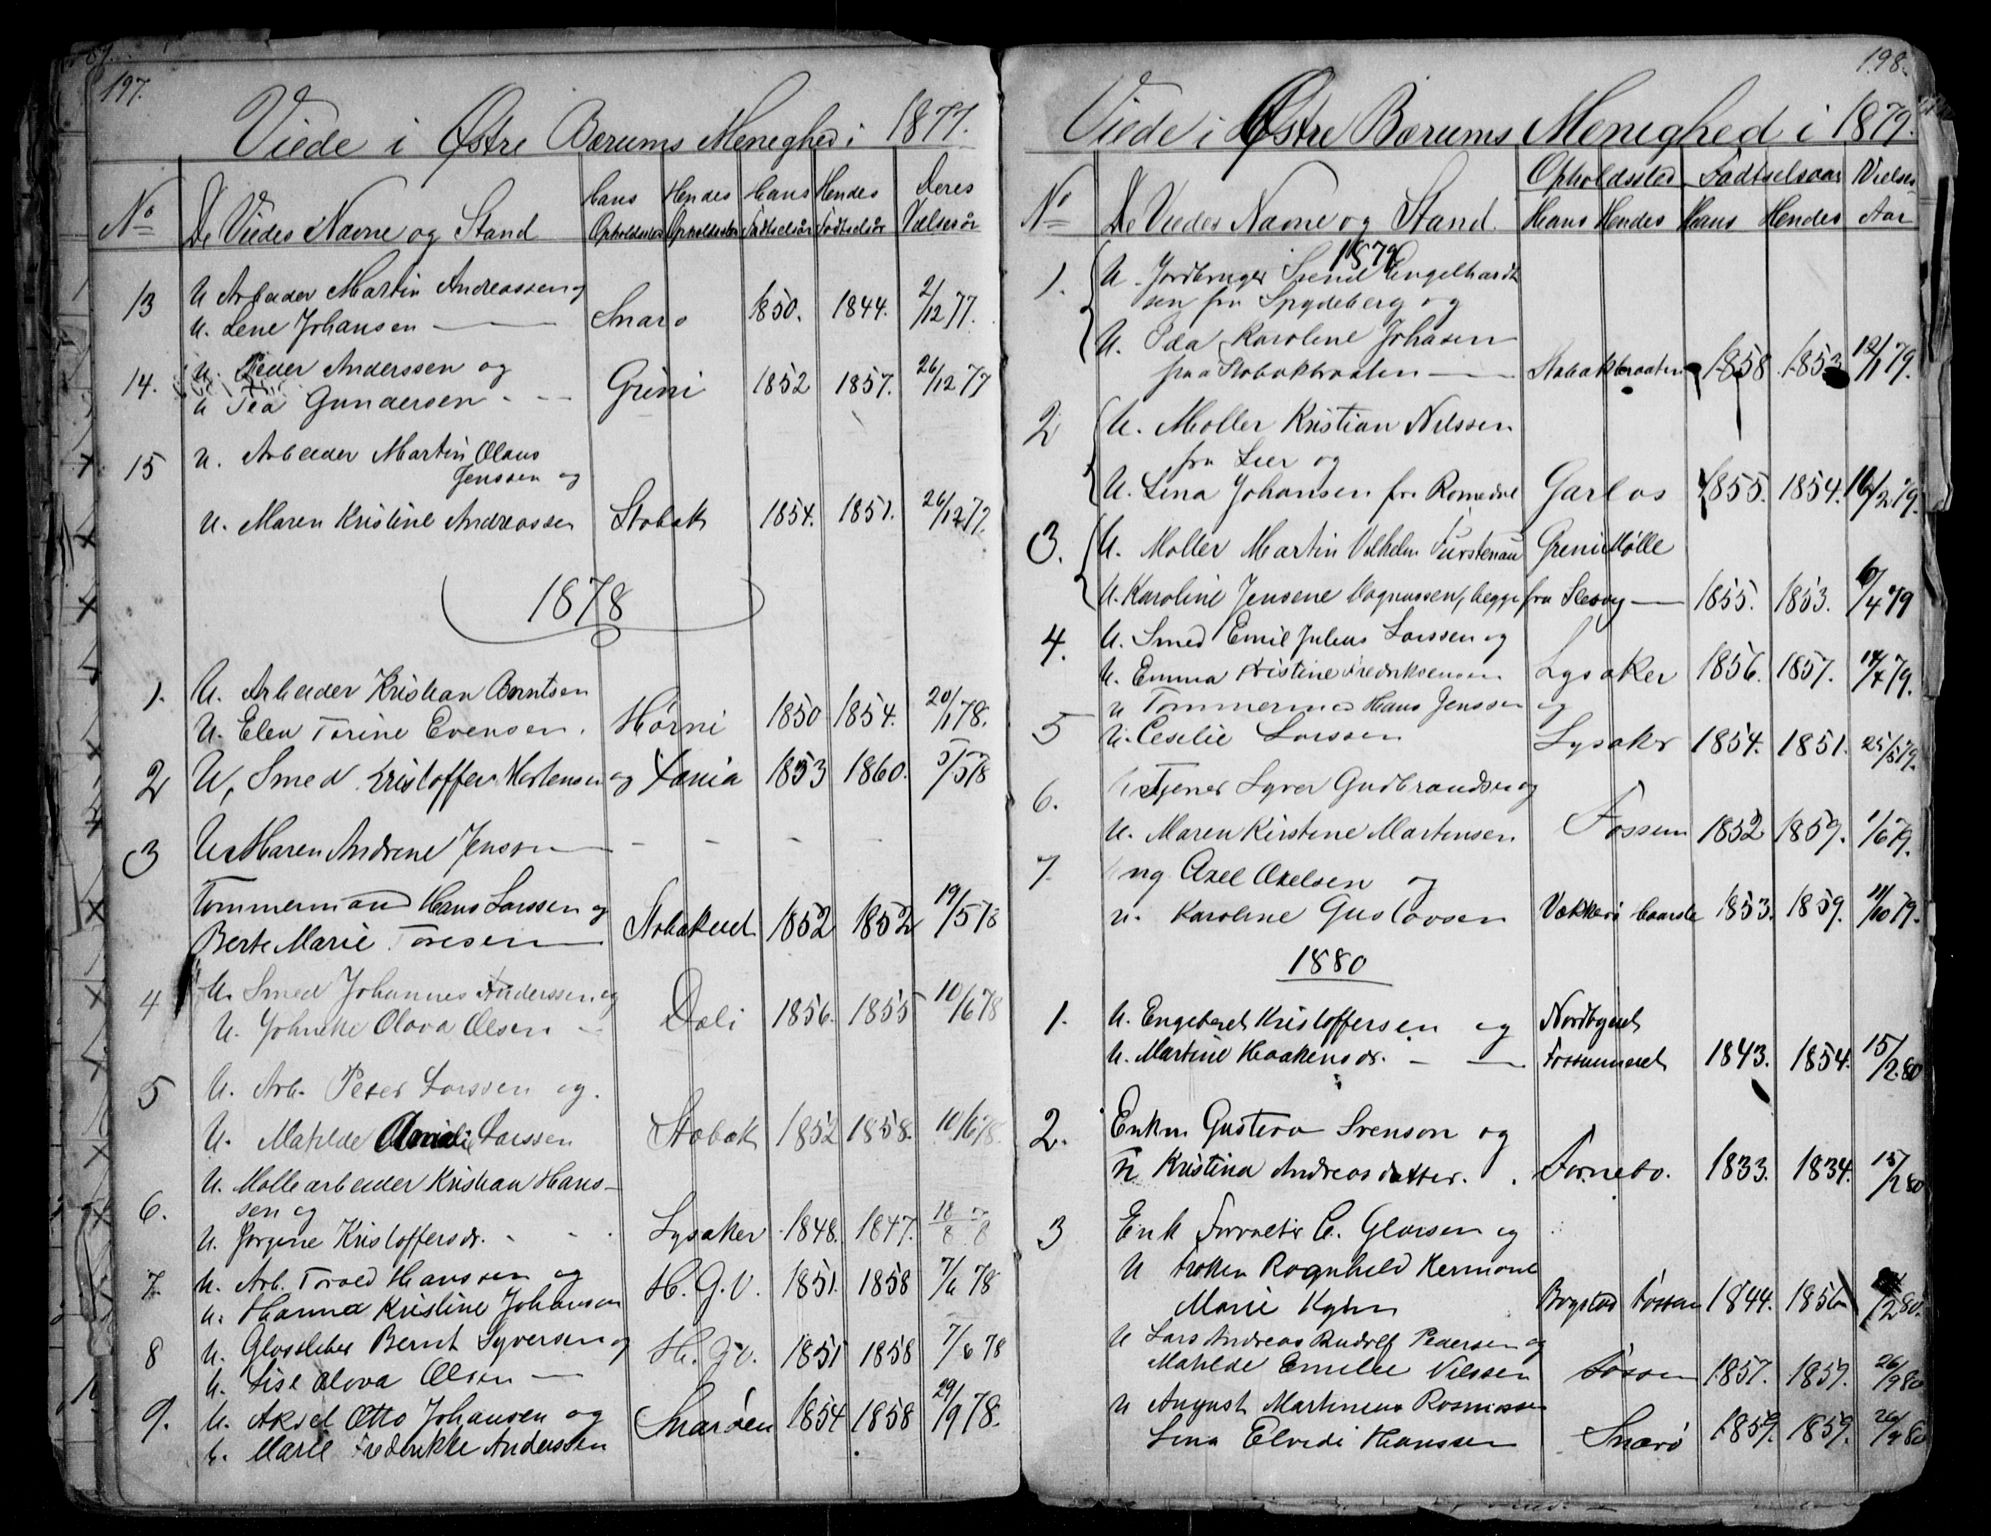 197.
Viede i Østre Bærums Menighed i 1877.
No De Viedes Navne og Stand Hans Opholdssted Hendes Opholdssted Hans Fødselsår Hendes Fødselsår Deres Vielsesår
13 U Arbeider Martin Andreassen og
U. Lene Johansen — Snarø 1850. 1844. 2/12 77.
14. U. Peder Anderssen og
U Pea Gundersen - — Grini 1852 1857. 26/12 77
15 U. Arbeider Martin Olaus
Jenssen og
U. Maren Kristine Andreassen Stabæk 1854. 1851. 26/12 77.
1878
1. U. Arbeider Kristian Berntsen
U. Elen Torine Evensen. Hørni 1850 1854. 20/1 78.
2 U, Smed Kristoffer Mortensen og Fania 1853 1860. 5/5 78
3 U Maren Andrene Jenson — - - - -
Tømmermand Hans Larssen og
Berte Marie Toresen — Stabækeiet 1852 1852 19/5 78
4 U. Smed Johannes Anderssen og
U. Johneke Olava Olsen - Dæli 1856. 1855 10/6 78
5 U. Arb. Peter Larssen og.
U. Matilde Amalie Larssen Stabæk 1852 1858. 10/6 78.
6. U. Møllearbeider Kristian Hans-
sen og
U. Jørgine Kristoffersdr. - - - Lysaker 1848. 1847. 18/8 78
7. U. Arb. Torvald Hanssen og
U. Hanna Kristine Johansen H. G. V. 1851. 1858 7/6 78
8 U. Glassleber Bernt Syversen og
U. Lise Olava Olsen — H. G. V. 1851 1858 7/6 78
9. U. Aksel Otto Johansen og
U. Marie Frederikke Anderssen Snarøen 1854 1858 29/9 78.
198.
Viede i Østre Bærums Menighed i 1879.
No De Viedes Navne og Stand. Opholdssted Hans Hendes Fødselsaar Hans Hendes Vielses-Aar
1879
1. U. Jordbruger Svend Engelhardt
sen fra Spydeberg og
U. Ida Karoline Johasen
fra Stabækbraaten — Stabækbraaten 1858 1853 12/1 79.
2 U. Møller Kristian Nilssen
fra Lier og
U. Lina Johansen fra Romedal Garløs 1855. 1854. 16/2 79.
3. U. Møller Martin Vilhelm Furstenau Grini Mølle
U. Karoline Jensene Magnussen, begge fra Slesvig — 1855. 1853. 6/4 79
4. U. Smed Emil Julius Larssen og
U. Emma Kristine Fredriksensen Lysaker 1856. 1857. 14/4 79.
5 U Tømmermad Hans Jenssen og
U. Ceselie Larssen Lysaker 1854. 1851. 25/5 79.
6. Tjener Syver Gudbrandsen og
U. Maren Kirstine Martinsen Fossum 1852 1859. 1/6 79.
7. Ung Axel Axelsen og
U. Karoline Gustavsen Vækkerø 1853. 1859. 11/10 79.
1880
1. U. Engebret Kristoffersen og Nordbyeiet
U. Martine Haakensdr. - — Fossumeiet 1843. 1854. 15/2. 80
2. Enkm Gustava Svenson og
U Kristina Andreasdatter. . Fornebo. 1833. 1834. 15/2 80
3 Enk Forvalter C. Glørsen og
U Frøken Ragnhild Hermone
Marie Kyhn Bogstad Fossum 1844. 1856 /2 80.
U Lars Andreas Rudolf Pedersen og
Matilde Emelie Nilssen Føssom 1857. 1857. 26/9 80
U August Martinius Rasmussen
Lina Elvedi Hanssen Snarø 1859. 1859. 26/9 80